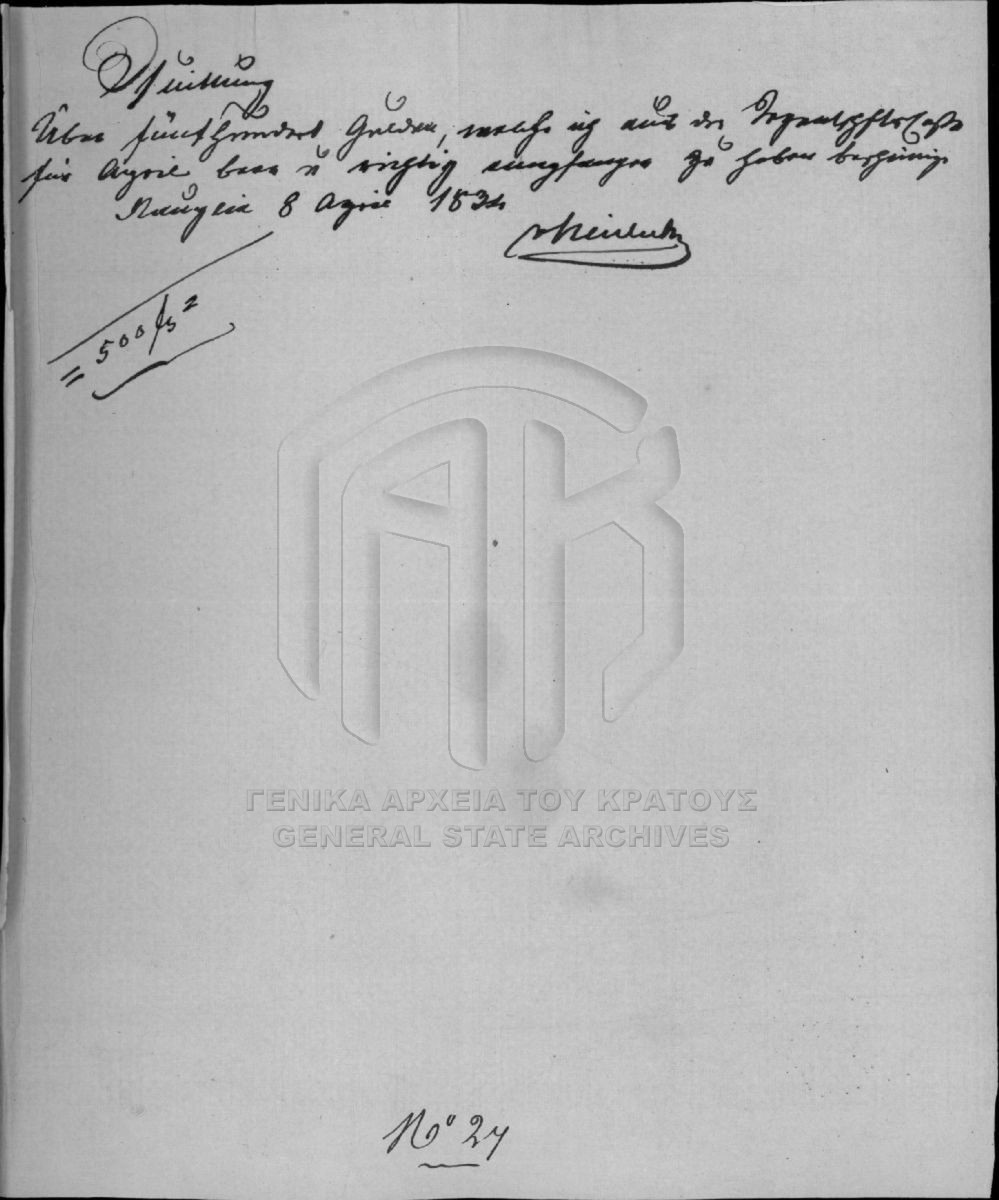 Quittung
Über fünfhundert Gulden, welche ich aus der Regentschftscasse
für April baar u richtig empfangen zu haben bescheinige
Nauplia 8 April 1834
= 500 f
ΓΕΝΙΚΑ ΑΡΧΕΙΑ ΤΟΥ ΚΡΑΤΟΥΣ
GENERAL STATE ARCHIVES
Nº 27